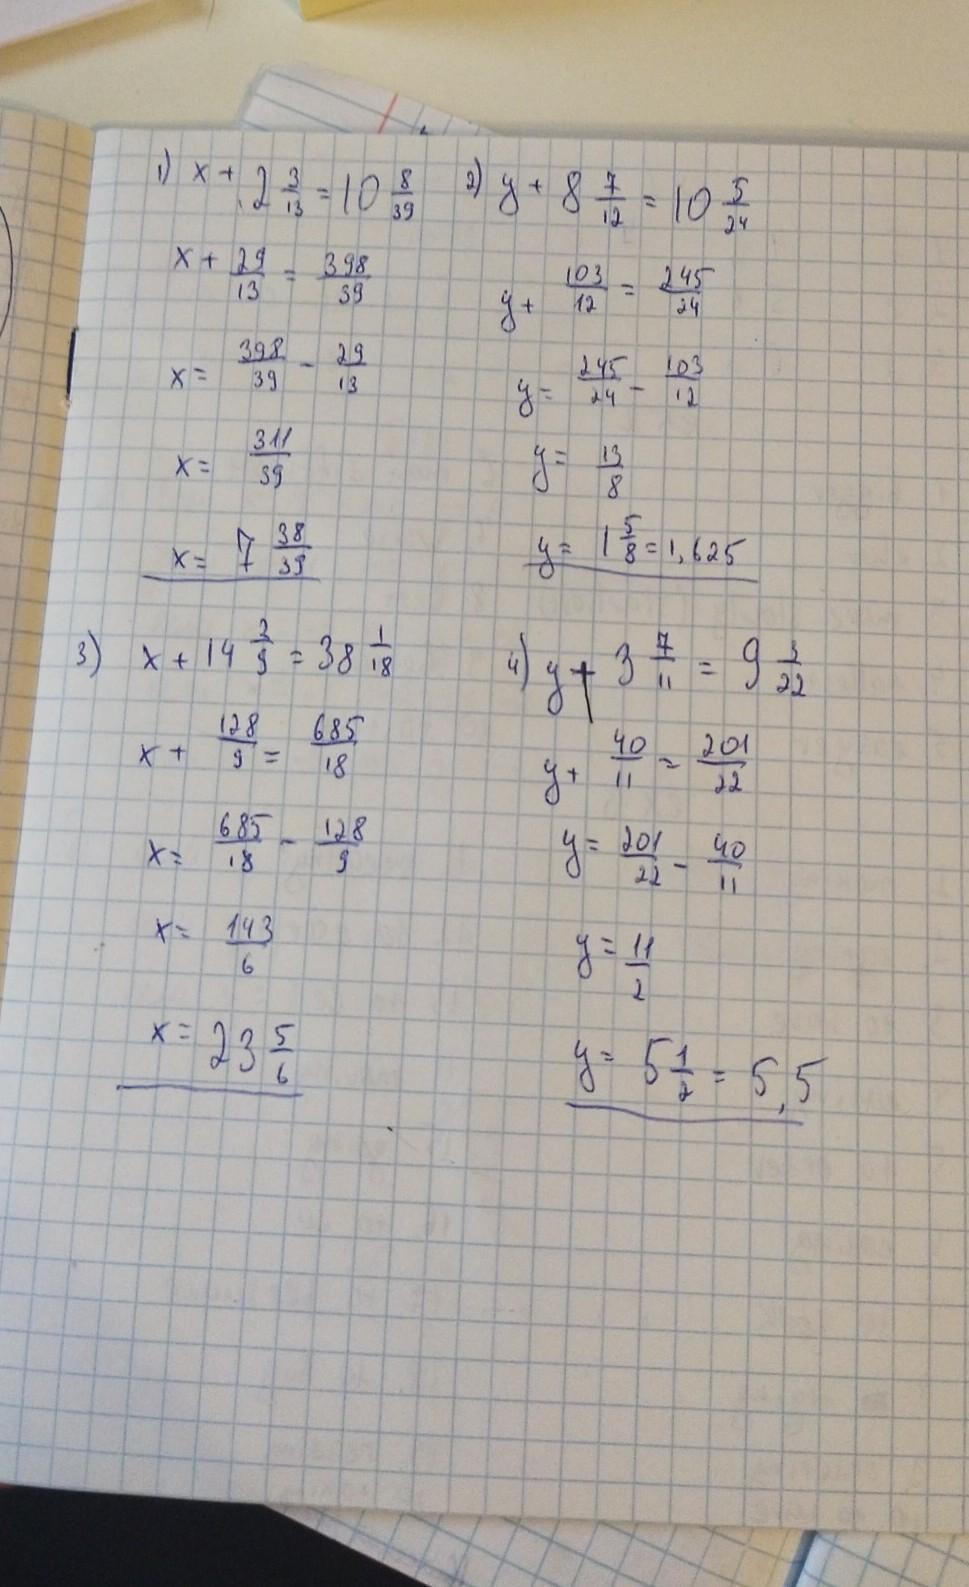 1) x + 2 3/13 = 10 8/39
x + 29/13 = 398/39
x = 398/39 - 29/13
x = 311/39
x = 7 38/39
2) y + 8 7/12 = 10 5/24
y + 103/12 = 245/24
y = 245/24 - 103/12
y = 13/8
y = 1 5/8 = 1,625
3) x + 14 2/9 = 38 1/18
x + 128/9 = 685/18
x = 685/18 - 128/9
x = 143/6
x = 23 5/6
4) y + 3 7/11 = 9 3/22
y + 40/11 = 201/22
y = 201/22 - 40/11
y = 11/2
y = 5 1/2 = 5,5